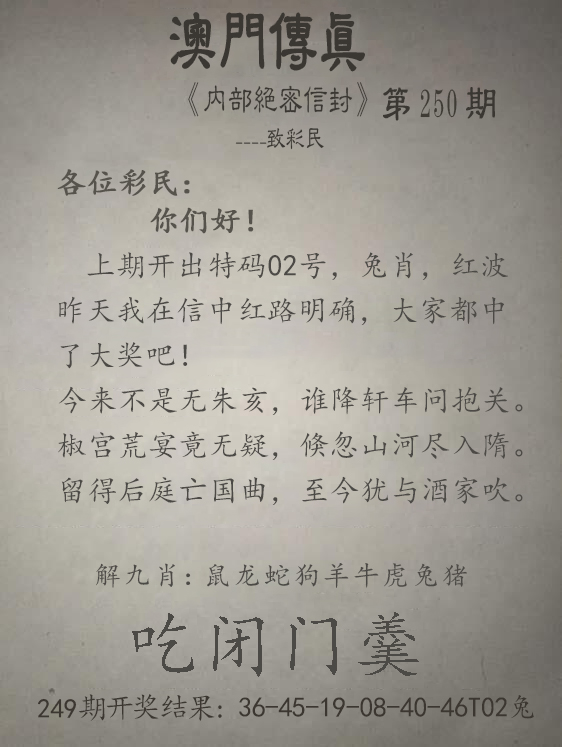 澳門傳眞
《内部絕密信封》第250期
----致彩民
各位彩民：
你们好！
上期开出特码02号，兔肖，红波
昨天我在信中红路明确，大家都中
了大奖吧！
今来不是无朱亥，谁降轩车问抱关。
椒宫荒宴竟无疑，倏忽山河尽入隋。
留得后庭亡国曲，至今犹与酒家吹。
解九肖：鼠龙蛇狗羊牛虎兔猪
吃闭门羹
249期开奖结果：36-45-19-08-40-46T02兔